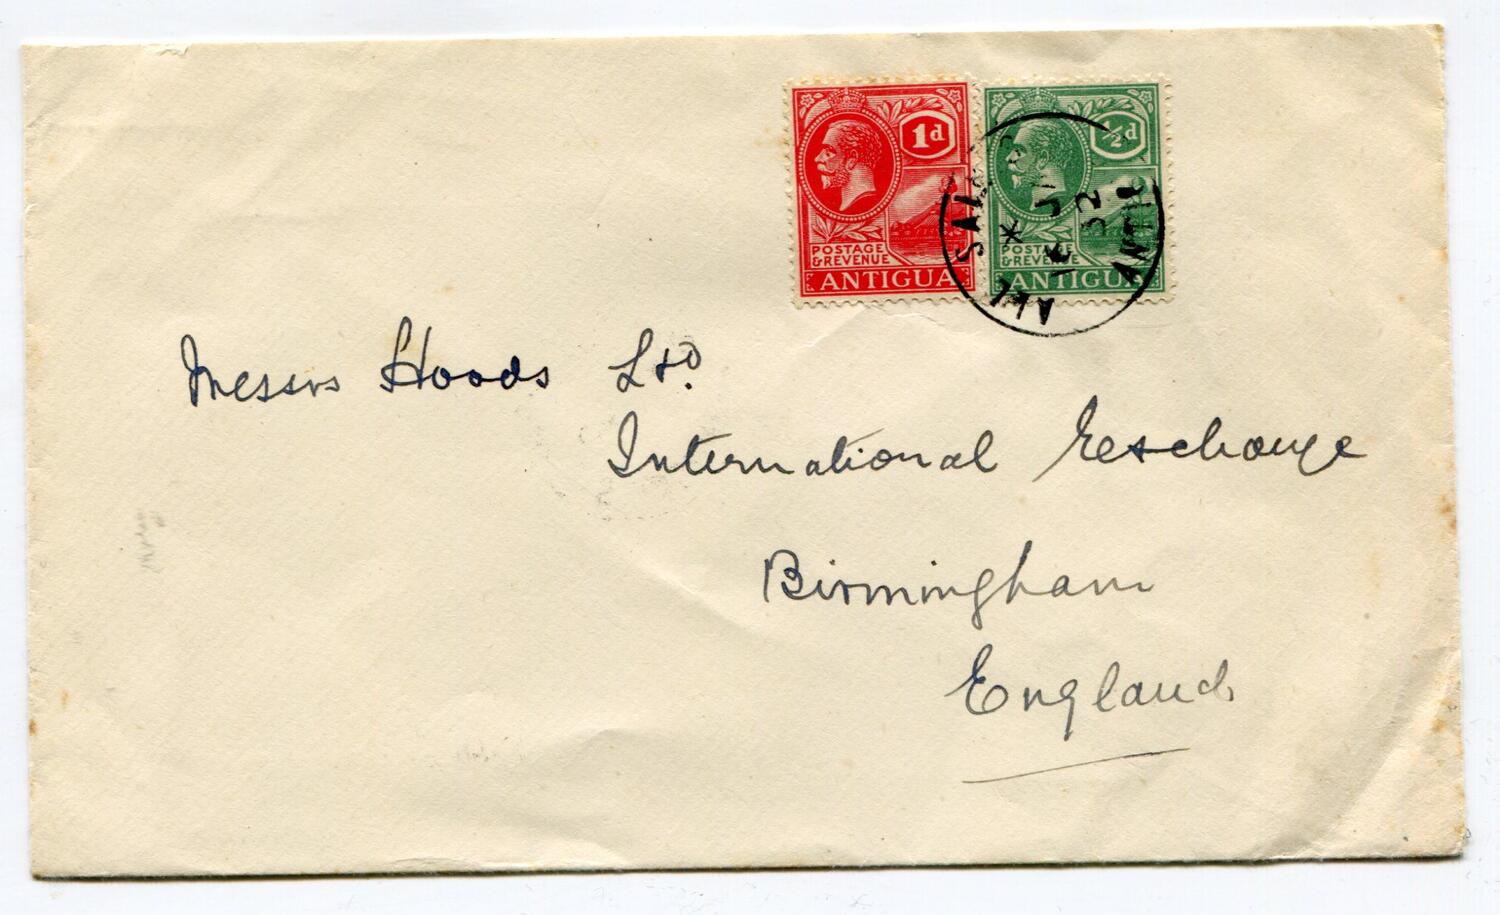 1d
POSTAGE
& REVENUE
ANTIGUA
½d
POSTAGE
& REVENUE
ANTIGUA
ALL SAINTS
*
32
ANTIGUA
Messrs Hoods Ltd.
International Exchange
Birmingham
England